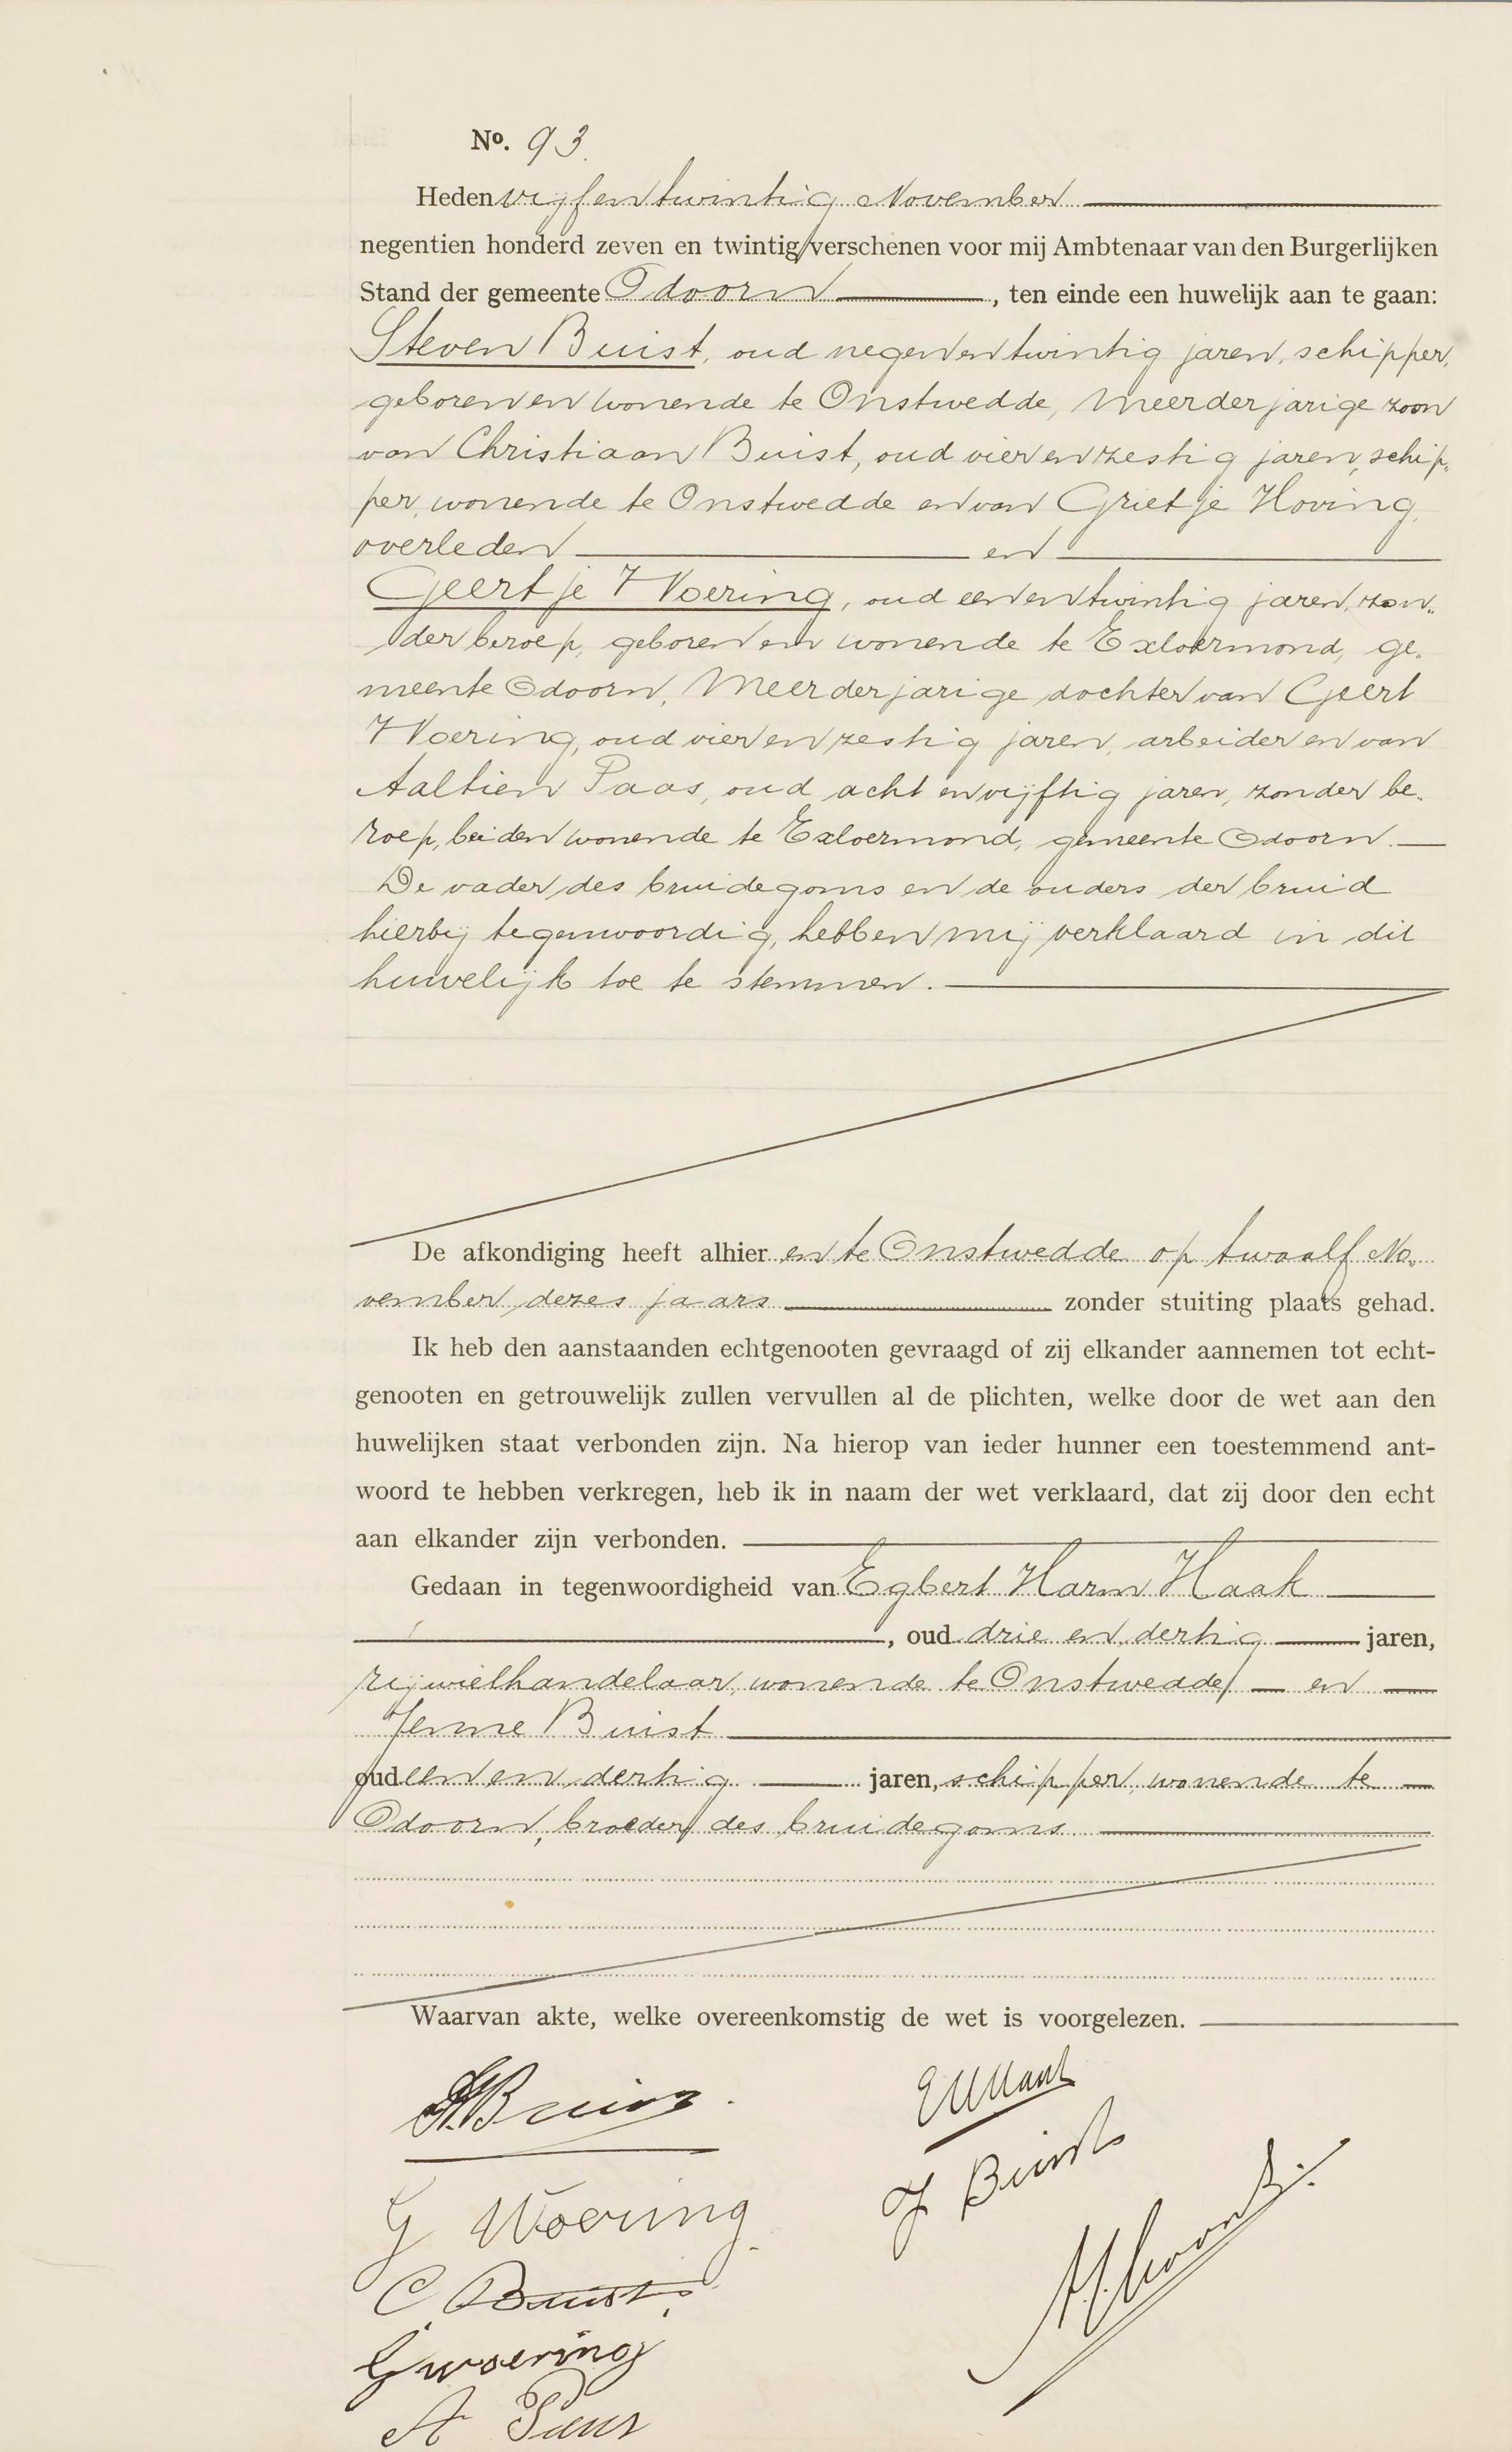 No. 93.
Heden vijf en twintig November
negentien honderd zeven en twintig, verschenen voor mij Ambtenaar van den Burgerlijken
Stand der gemeente Odoorn, ten einde een huwelijk aan te gaan:
Steven Buist, oud negen en twintig jaren, schipper,
geboren en wonende te Onstwedde, meerderjarige zoon
van Christiaan Buist, oud vier en zestig jaren, schip-
per, wonende te Onstwedde en van Grietje Hoving,
overleden en
Geertje Woering, oud een en twintig jaren, zon-
der beroep, geboren en wonende te Exloërmond, ge-
meente Odoorn, meerderjarige dochter van Geert
Woering, oud vier en zestig jaren, arbeider en van
Aaltien Paas, oud acht en vijftig jaren, zonder be-
roep, beiden wonende te Exloermond, gemeente Odoorn.
De vader des bruidegoms en de ouders der bruid
hierbij tegenwoordig, hebben mij verklaard in dit
huwelijk toe te stemmen.
De afkondiging heeft alhier en te Onstwedde op twaalf No-
vember dezes jaars zonder stuiting plaats gehad.
Ik heb den aanstaanden echtgenooten gevraagd of zij elkander aannemen tot echt-
genooten en getrouwelijk zullen vervullen al de plichten, welke door de wet aan den
huwelijken staat verbonden zijn. Na hierop van ieder hunner een toestemmend ant-
woord te hebben verkregen, heb ik in naam der wet verklaard, dat zij door den echt
aan elkander zijn verbonden.
Gedaan in tegenwoordigheid van Egbert Harm Haak
, oud drie en dertig jaren,
rijwielhandelaar, wonende te Onstwedde, en
Jenne Buist
oud een en dertig jaren, schipper, wonende te
Odoorn, broeder des bruidegoms
Waarvan akte, welke overeenkomstig de wet is voorgelezen.
S. Buist.
EHHaak
J Buist
G Woering.
C. Buist.
G woering
A Paas